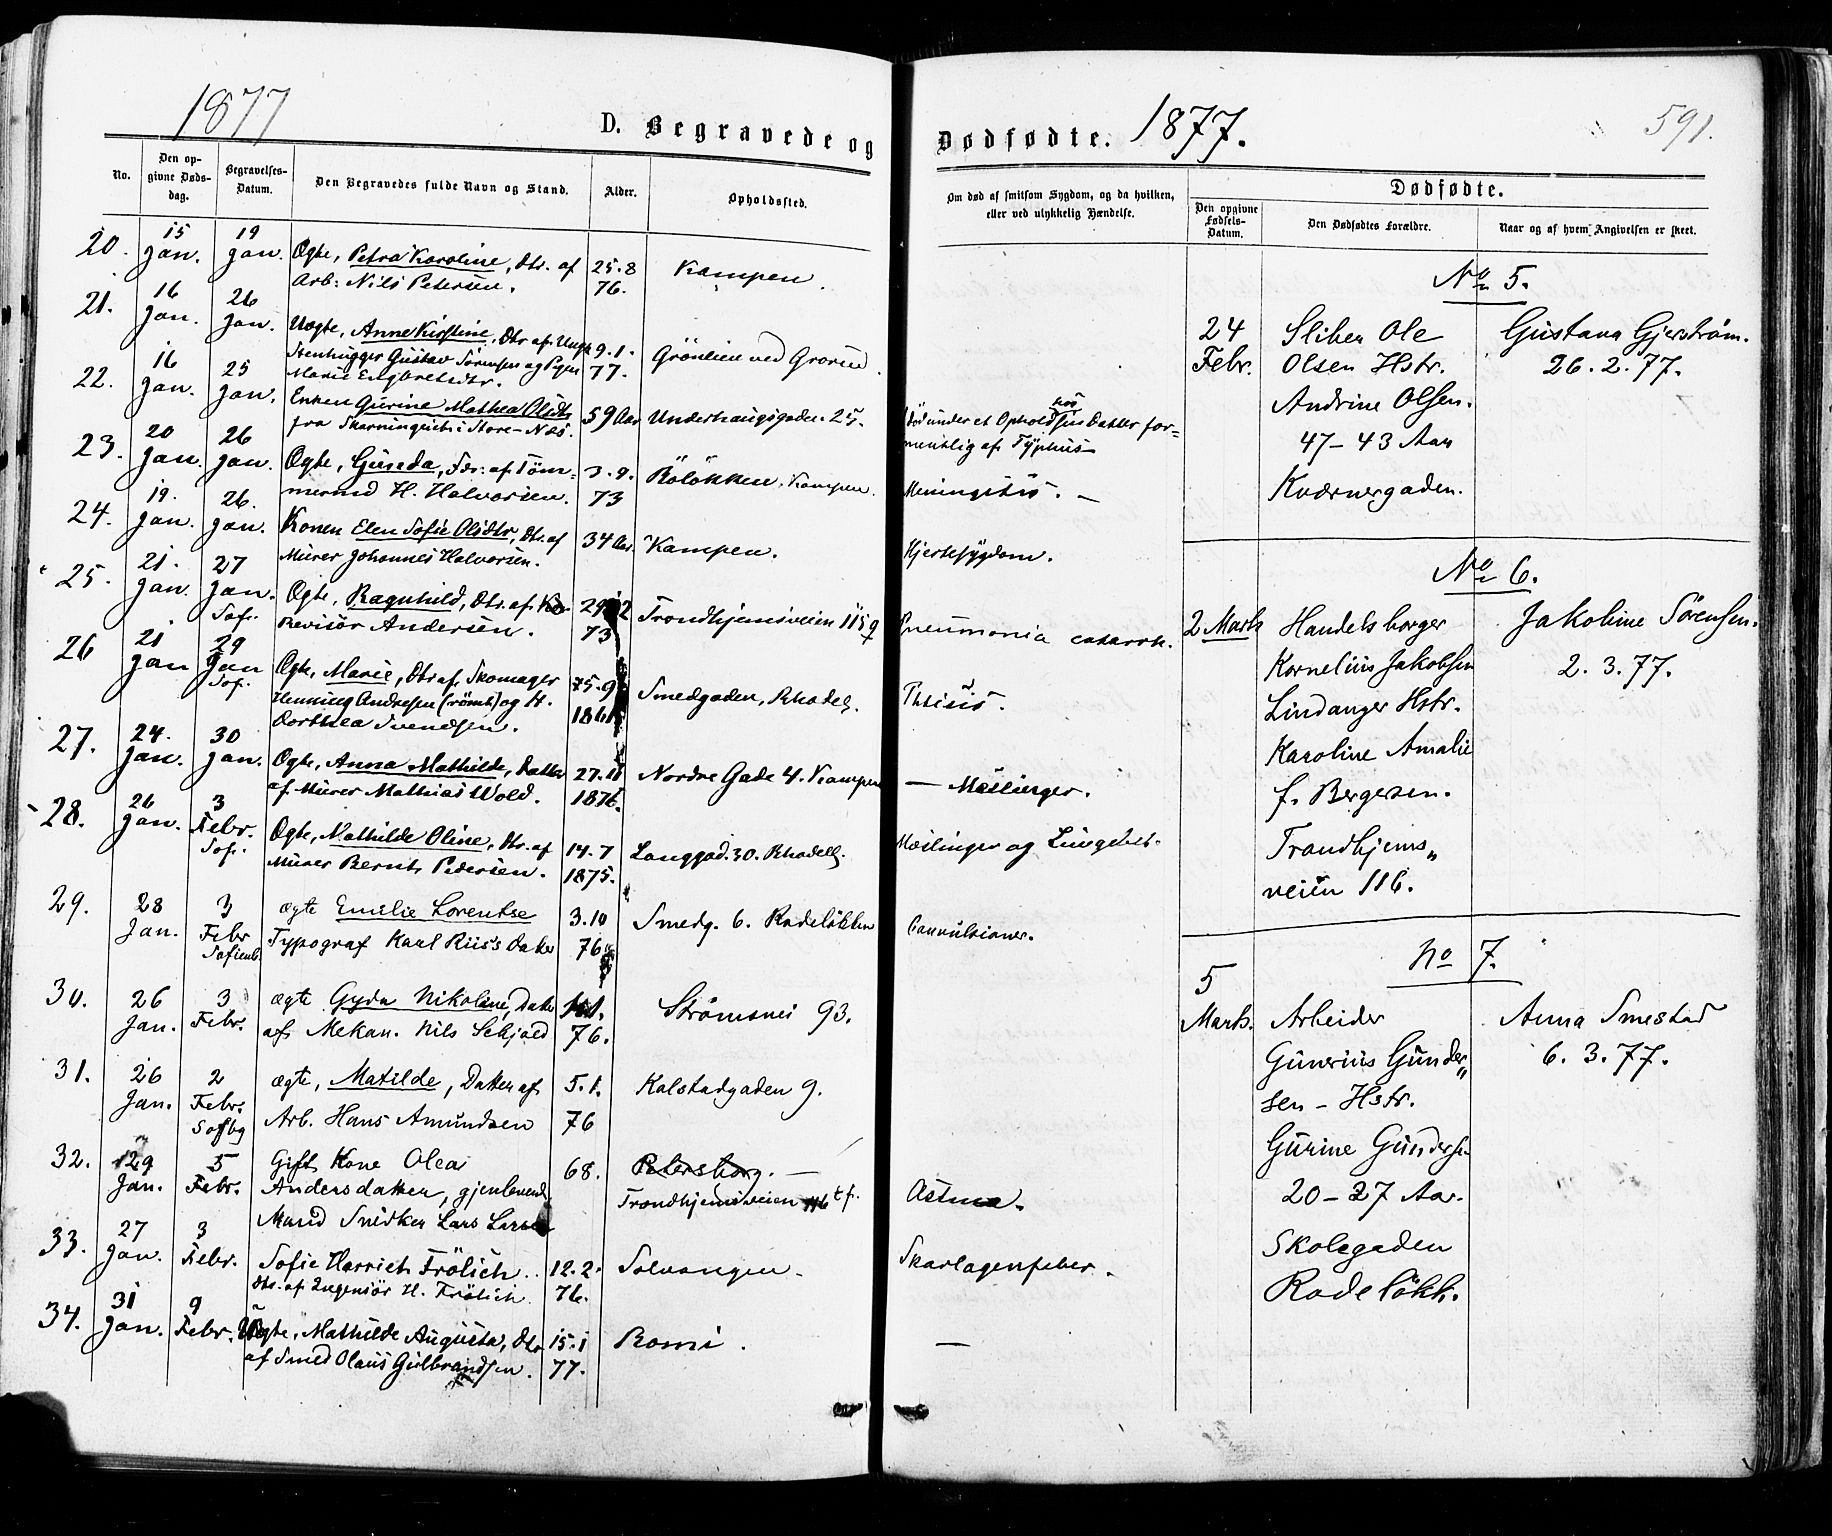 1877
D. Begravede og
No.
Den op-
givne Døds-
dag.
Begravelses-
Datum.
Den Begravedes fulde Navn og Stand.
Alder.
Opholdssted.
20. 15 Jan. 19 Jan. Ægte, Petra Karoline, Dtr. af 25.8
Arb: Nils Petersen. 76. Kampen.
21. 16 Jan. 26 Jan. Uægte, Anne Kirstine, Dtr. af Ungk. 9.1.
Stenhugger Gustav Sørensen og Pigen 77. Grönlien ved Grorud.
Marie Engbretsdtr.
22. 16 Jan. 25 Jan. Enken Gurine Mathea Olsdtr 59 Aar Underhaugsgaden 25.
fra i Store-Næs.
23. 20 Jan. 26 Jan. Ægte, Guneda, af Töm- 3.9. Rölökken, Kampen.
mermd H. Halvorsen. 73
24. 19. Jan. 26. Jan. Konen Elen Sofie Olsdtr, Dtr. af 34 Aar Kampen.
Murer Johannes Halvorsen.
25. 21. Jan. 27 Jan. Sofi. Ægte, Ragnhild, Dtr. af Trondhjemsveien 115
Revisör Andersen. 73
26 21 Jan 29 Jan Sof. Ægte, Marie, Dtr af Skomager Smedgaden, Rhodel.
Henning Andresen (römt) og H. 1861
Dorthea Svendsen.
27. 24. Jan. 30 Jan. Ægte, Anna Mathilde, Datter 27.11 Nordre Gade 4. Kampen
af Murer Mathias Wold. 1876.
28. 26 Jan. 3 Febr. Sof. Ægte, Mathilde Oline, Dtr. af 14.7 Langgad. 30. Rhodell.
Murer Bernt Pedersen. 1875.
29. 28 Jan. 3 Febr Sofienb. ægte Emilie Lorentse 3.10 Smedg. 6. Rodelökken
Typograf Karl Riis's Datter 76
30. 26 Jan. 3 Febr. ægte Gyda Nikoline, Datter Strömsvei 93.
af Mekan. Nils 76.
31. 26 Jan. 2 Febr. Sofbg ægte, Matilde, Datter af 5.1. Kalstadgaden 9.
Arb. Hans Amundsen 76
32. 29 Jan. 5 Febr. Gift Kone Olea 68. Petersborg. —
Andersdatter, gjenlevende Trondhjemsveien 116
Mand Snedker Lars Larsen
33. 27 Jan. 3 Febr. Sofie Harriet Frölich 12.2. Solvangen
Dtr. af Ingeniör H. Frölich 76.
34. 31 Jan. 9 Febr. Uægte, Mathilde Augusta, Dtr 15.1 Romi.
af Smed Olaus Gulbrandsen. 77.
Dødfødte. 1877.
591.
Om død af smitsom Sygdom, og da hvilken,
eller ved ulykkelig Hændelse.
Dødfødte.
Den opgivne
Fødsels-
Datum.
Den Dødfødtes Forældre.
Naar og af hvem Angivelsen er skeet.
Död under et Ophold hos sin Datter for-
mentlig af Typhus
Meningitis. —
Hjertesygdom.
Pneumonia catarrh.
Phtisis.
— Mæslinger.
Mæslinger og Lungebet.
Convulsioner.
Astma.
Skarlagensfeber.
—
No 5.
24 Febr. Sliber Ole Gustava Gjerström.
Olsen Hstr. 26.2.77.
Andrine Olsen.
47-43 Aar
Kværnergaden.
No 6.
2 Marts Handelsborger Jakobine Sörensen.
Kornelius Jakobsen 2.3.77.
Lindanger Hstr.
Karoline Amalie
f. Bergesen.
Trondhjems„
veien 116.
No 7.
5 Marts. Arbeider Anna Smestad
Gunerius Gunder„ 6.3.77.
sen - Hstr.
Gurine Gunders.
20-27 Aar.
Skolegaden
Rodelökk.